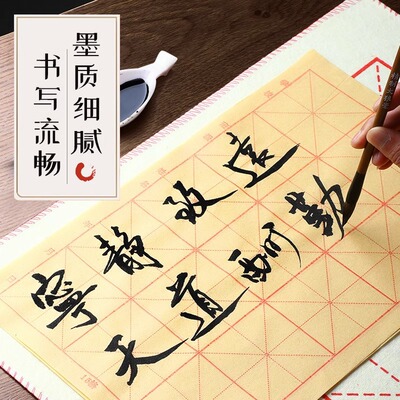 墨质细腻
书写流畅
寧静致遠
天道酬勤